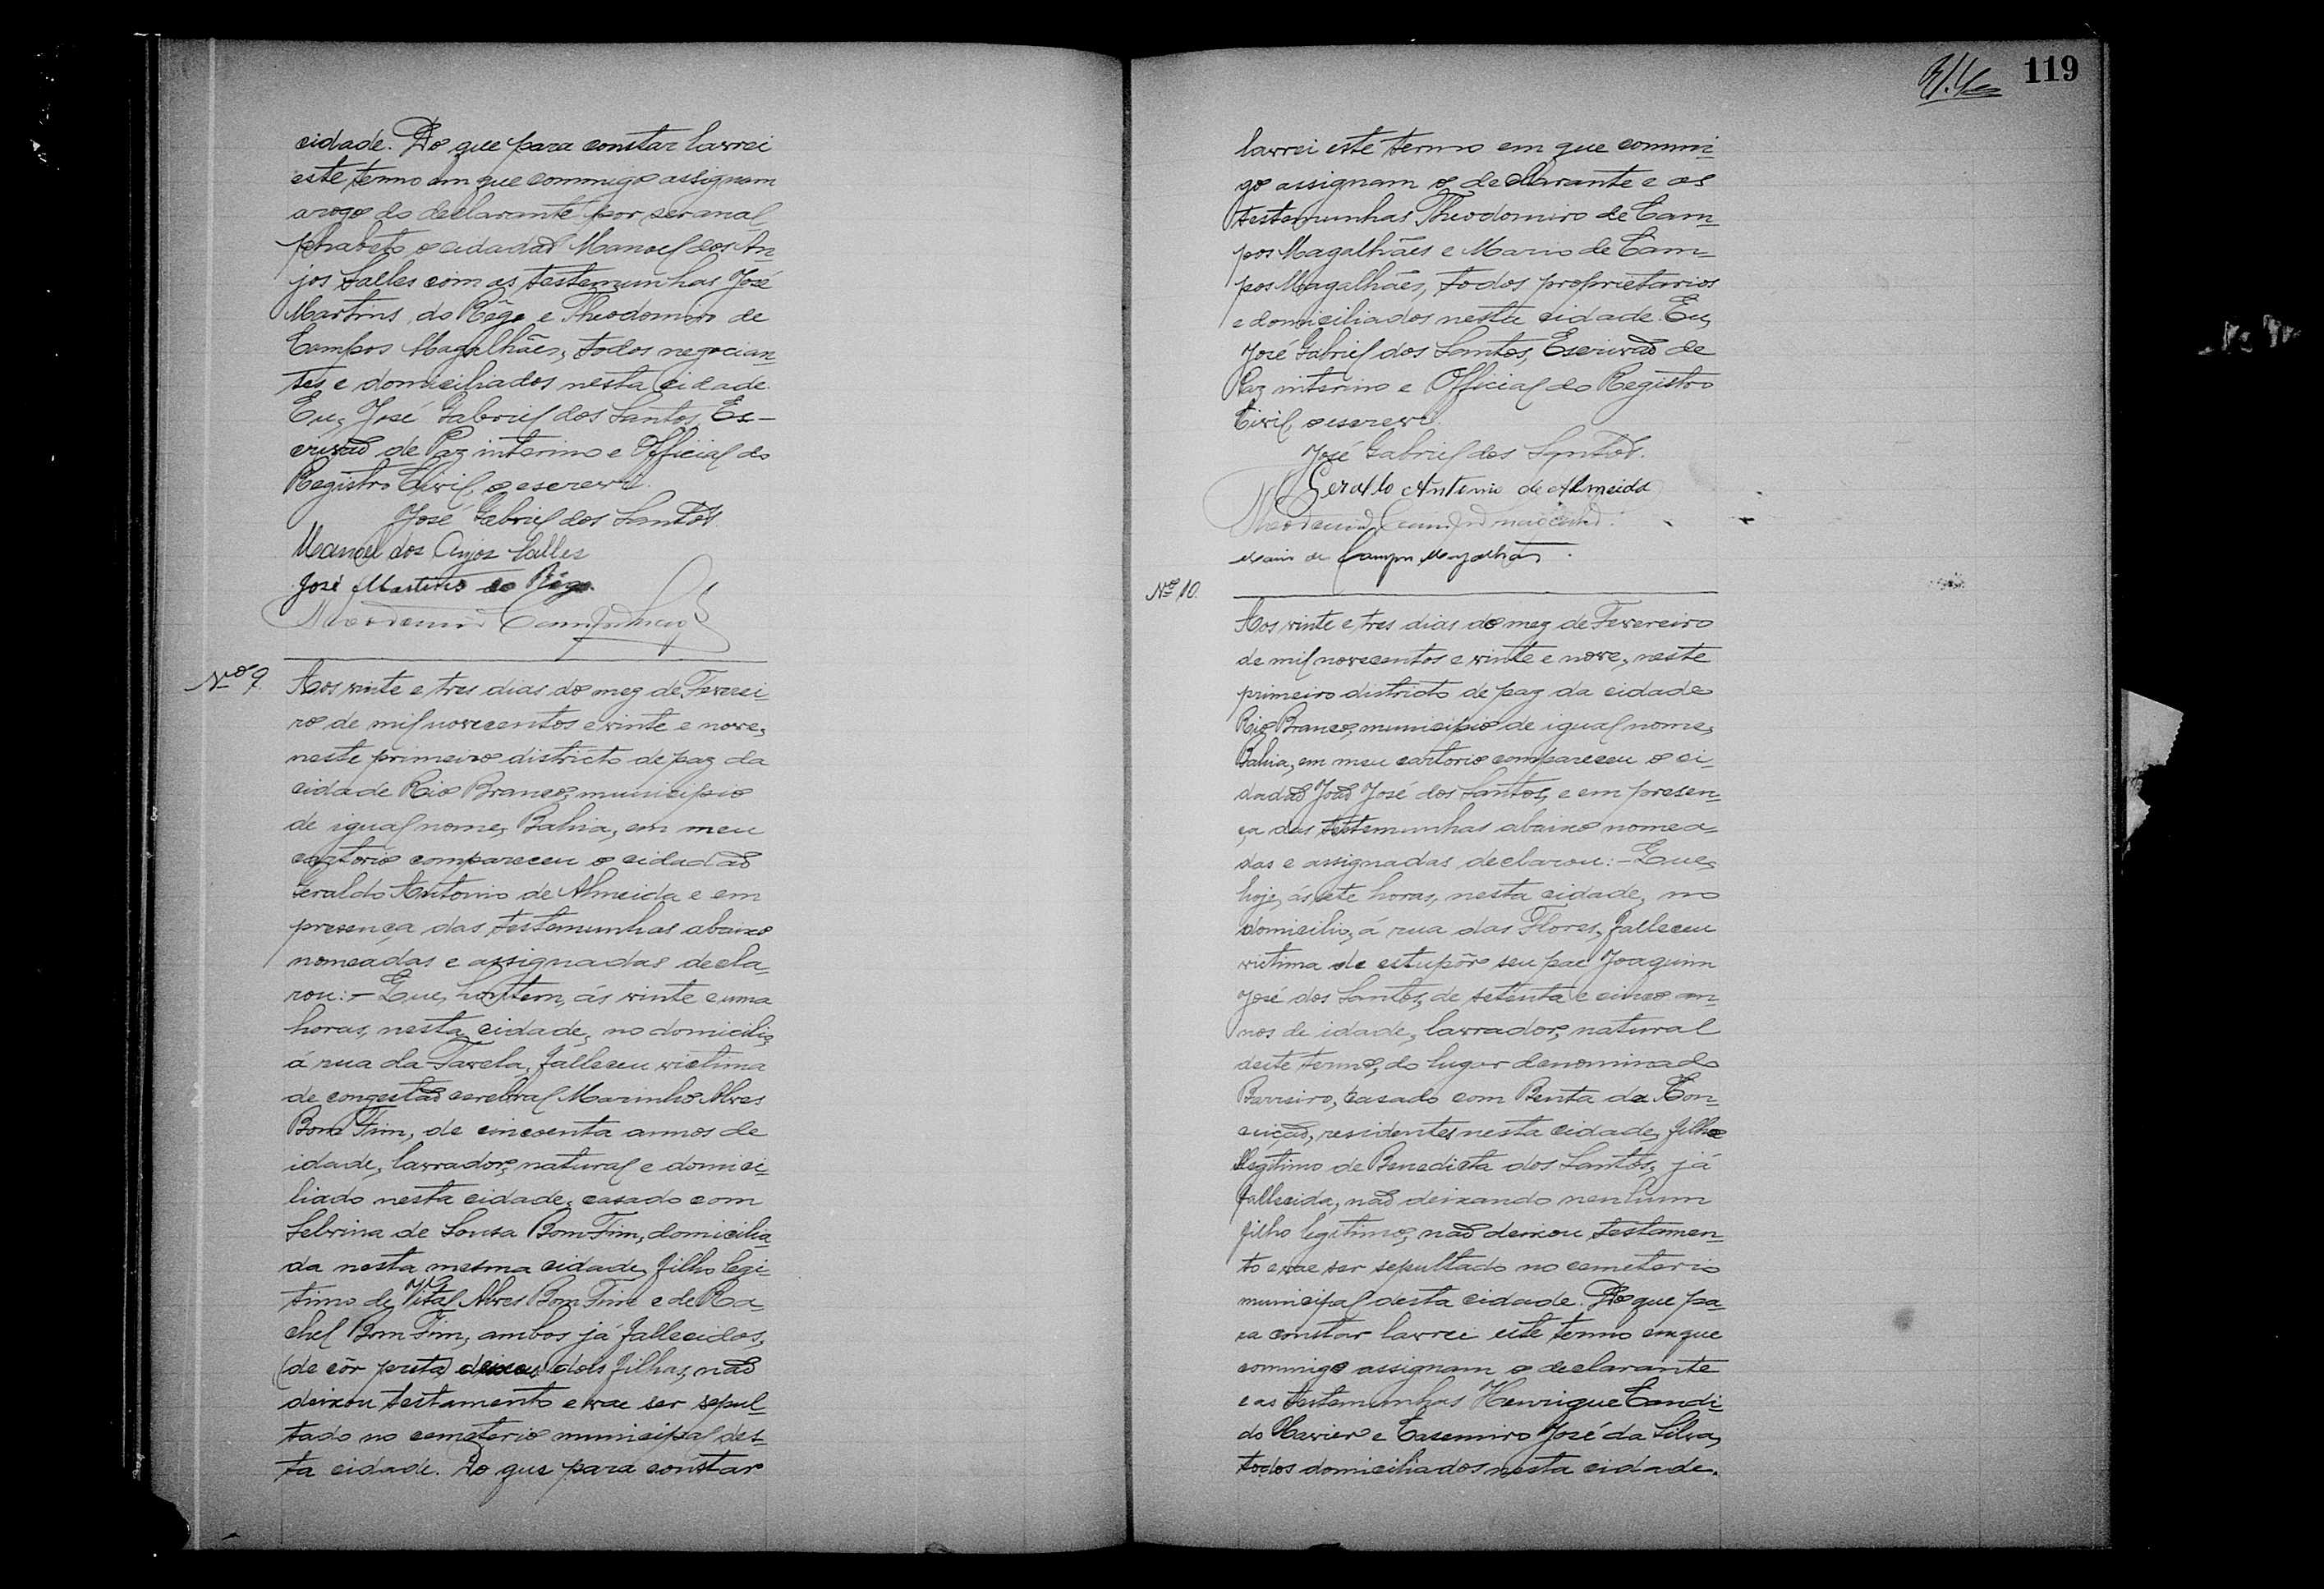 cidade. Do que para constar lavrei
este termo em que commigo assignam
a rogo do declarante por ser anal-
phabeto o cidadão Manoel dos An-
jos Salles com as testemunhas José
Martins do Rêgo e Theodomiro de
Campos Magalhães, todos negocian-
tes e domiciliados nesta cidade.
Eu, José Gabriel dos Santos, Es-
crivão de Paz interino e Official do
Registro Civil, o escrevi.
José Gabriel dos Santos
Manoel dos Anjos Salles
José Martins do Rêgo
Nº 9.
Aos vinte e tres dias do mez de Feverei-
ro de mil novecentos e vinte e nove,
neste primeiro districto de paz da
cidade Rio Branco, municipio
de igual nome, Bahia, em meu
cartorio compareceu o cidadão
Geraldo Antonio de Almeida e em
presença das testemunhas abaixo
nomeadas e assignadas decla-
rou: - Que, hontem, ás vinte e uma
horas, nesta cidade, no domicilio,
á rua da Favela, falleceu victima
de congestão cerebral Marinho Alves
Bom Fim, de cincoenta annos de
idade, lavrador, natural e domici-
liado nesta cidade, casado com
Sebrina de Sousa Bom Fim, domicilia-
da nesta mesma cidade, filho legi-
timo de Vital Alves Bom Fim e de Ra-
chel Bom Fim, ambos já fallecidos,
(de côr preta) deixou dois filhos, não
deixou testamento e vae ser sepul-
tado no cemeterio municipal des-
ta cidade. Do que para constar
119
lavrei este termo em que commi-
go assignam o declarante e as
testemunhas Theodomiro de Cam-
pos Magalhães e Mario de Cam-
pos Magalhães, todos proprietarios
e domiciliados nesta cidade. Eu,
José Gabriel dos Santos, Escrivão de
Paz interino e Official do Registro
Civil, o escrevi.
José Gabriel dos Santos.
Geraldo Antonio de Almeida
Mario de Campos Magalhães.
Nº 10.
Aos vinte e tres dias do mez de Fevereiro
de mil novecentos e vinte e nove, neste
primeiro districto de paz da cidade
Rio Branco, municipio de igual nome,
Bahia, em meu cartorio compareceu o ci-
dadão João José dos Santos, e em presen-
ça das testemunhas abaixo nomea-
das e assignadas declarou: - Que,
hoje, ás sete horas, nesta cidade, no
domicilio, á rua das Flores, falleceu
victima de estupôr seu pae Joaquim
José dos Santos, de setenta e cinco an-
nos de idade, lavrador, natural
deste termo, do lugar denominado
Barreiro, casado com Benta da Con-
ceição, residentes nesta cidade, filho
illegitimo de Benedicta dos Santos, já
fallecida, não deixando nenhum
filho legitimo, não deixou testamen-
to e vae ser sepultado no cemeterio
municipal desta cidade. Do que pa-
ra constar lavrei este termo em que
commigo assignam o declarante
e as testemunhas Henrique Candi-
do Xavier e Casemiro José da Silva,
todos domiciliados nesta cidade.